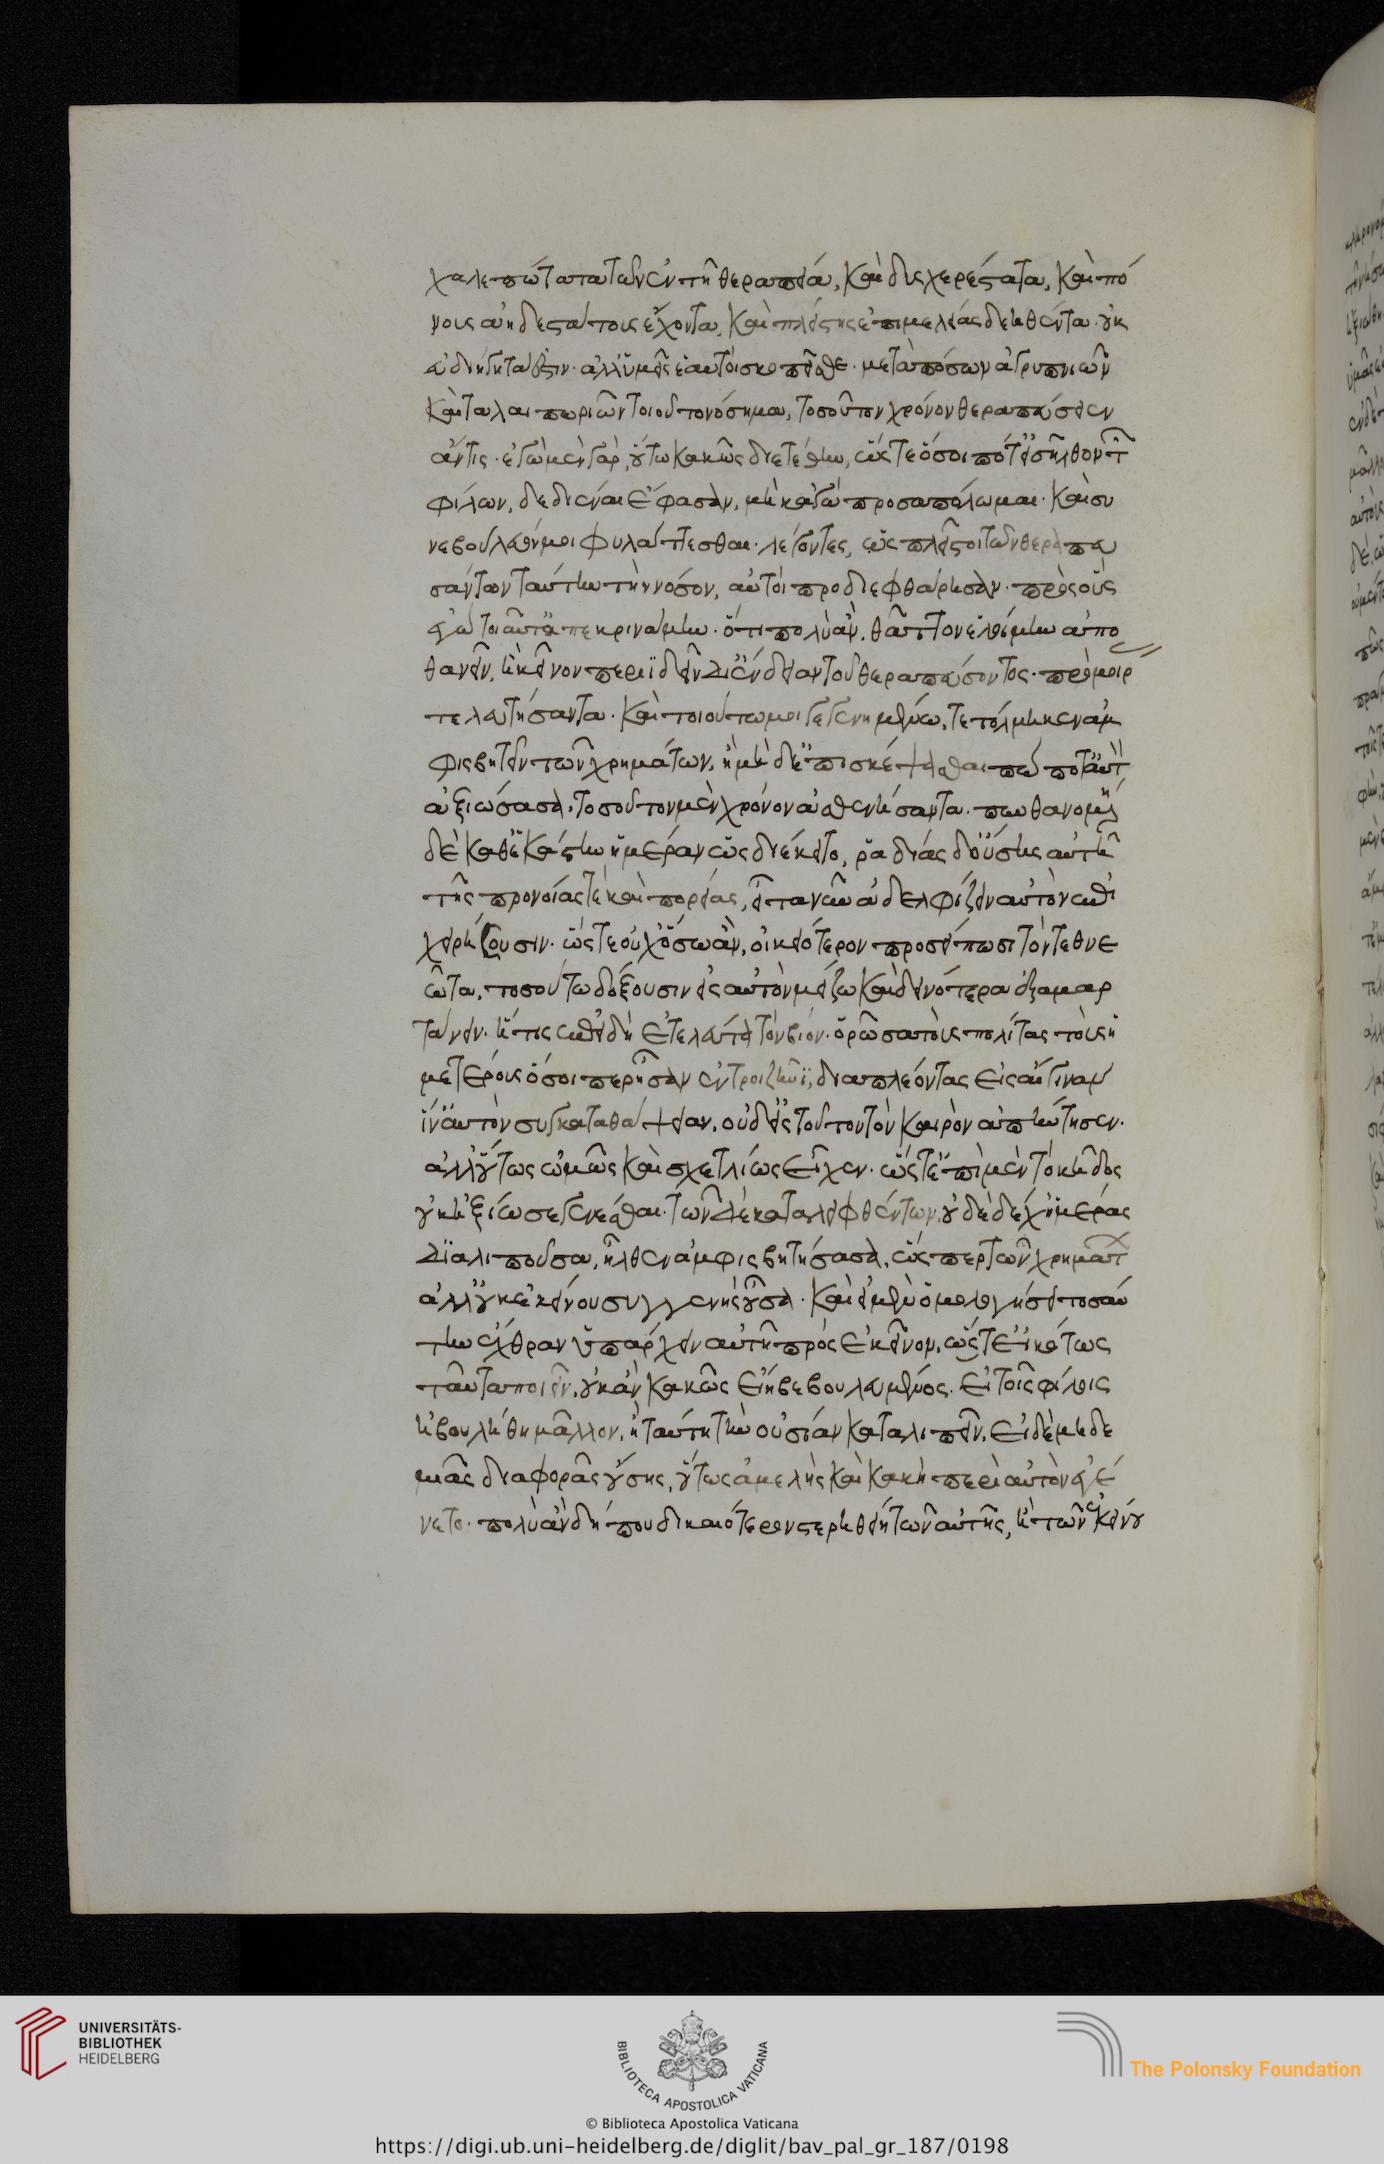 χαλεπώτατα τῶν ἐν τῆ θεραπεία, καὶ δυσχερέστατα, καὶ πό
νους ἀηδεστάτους ἔχοντα, καὶ πλείστης ἐπιμελείας δεηθέντα. οὐκ
εὐδιήγητά ἐστιν. ἀλλ' ὑμεῖς αὐτοὶ σκοπεῖσθε. μετὰ πόσων ἀγρυπνιῶν
καὶ ταλαιπωριῶν τοιοῦτον νόσημα, τοσοῦτον χρόνον θεραπεύσειεν
ἄν τις. ἐγὼ μὲν γὰρ, οὕτω κακῶς διετέθην, ὥστε ὅσοι πότ' εἰσῆλθον τῶν
φίλων, δεδιέναι ἔφασαν, μὴ κἀγὼ προσαπόλωμαι. καὶ συ
νεβούλευόν μοι φυλάττεσθαι. λέγοντες, ὡς πλεῖστοι τῶν θεραπευ
σάντων ταύτην τὴν νόσον, αὐτοὶ προδιεφθάρησαν. πρὸς οὓς
ἐγὼ τοιαῦτ' ἀπεκρινάμην. ὅτι πολὺ ἂν, θᾶττον ἑλοίμην ἀπο
θανεῖν, ἢ κεῖνον περιϊδεῖν δι' ἔνδειαν τοῦ θεραπεύσοντος. πρὸ μοίρ
τελευτήσαντα. καὶ τοιούτω μοι γεγενημένω, τετόλμηκεν ἀμ
φισβητεῖν τῶν χρημάτων, ἡ μὴ δ' ἐπισκέψασθαι πώποτ' αὐτὸν
ἀξιώσασα, τοσοῦτον μὲν χρόνον ἀσθενήσαντα. πυνθανομένη
δὲ καθ' ἑκάστην ἡμέραν ὡς διέκειτο, ῥαδίας δ' οὔσης αὐτῆ
τῆς προνοίας τὲ καὶ πορείας, εἶτα νῦν ἀδελφίζειν αὐτὸν ἐπι
χειρήσουσιν. ὥστε οὐχ ὅσω ἂν, οἰκειότερον προσείπωσι τὸν τεθνε
ῶτα, τοσούτω δόξουσιν εἰς αὐτὸν μείζω καὶ δεινότερα ἐξαμαρ
τάνειν. ἥτις ἐπειδὴ ἐτελεύτα τὸν βίον. ὁρῶσα τοὺς πολίτας τοὺς ἡ
μετέρους ὅσοι περ ἦσαν ἐν τροιζῆνϊ, διαπλέοντας εἰς αἴγιναν
ἵν' αὐτὸν συγκαταθάψειαν. οὐδ' εἰς τοῦτον τὸν καιρὸν ἀπήντησεν.
ἀλλ' οὕτως ὠμῶς καὶ σχετλίως εἶχεν. ὥστ' ἐπὶ μὲν τὸ κῆδος
οὐκ ἠξίωσε γενέσθαι. τῶν δὲ καταλειφθέντων, οὐδὲ δέχ' ἡμέρας
διαλιποῦσα, ἦλθεν ἀμφισβητήσασα, ὥσπερ τῶν χρημάτ
ἀλλ' οὐκ ἐκείνου συγγενὴς οὖσα. καὶ εἰ μὲν ὁμολογήσει τοσαύ
την ἔχθραν ὑπάρχειν αὐτῆ πρὸς ἐκεῖνον, ὥστ' εἰκότως
ταῦτα ποιεῖν, οὐκ ἂν κακῶς εἴη βεβουλευμένος. εἰ τοῖς φίλοις
ἠβουλήθη μᾶλλον, ἢ ταύτη τὴν οὐσίαν καταλιπεῖν. εἰ δὲ μὴ δε
μιᾶς διαφορᾶς οὔσης, οὕτως ἀμελὴς καὶ κακὴ περὶ αὐτὸν ἐγέ
νετο. πολὺ ἂν δή που δικαιότερον στερηθείη τῶν αὐτῆς, ἢ τῶν ἐκείνου
UNIVERSITÄTS-
BIBLIOTHEK
HEIDELBERG
BIBLIOTECA APOSTOLICA VATICANA
The Polonsky Foundation
© Biblioteca Apostolica Vaticana
https://digi.ub.uni-heidelberg.de/diglit/bav_pal_gr_187/0198